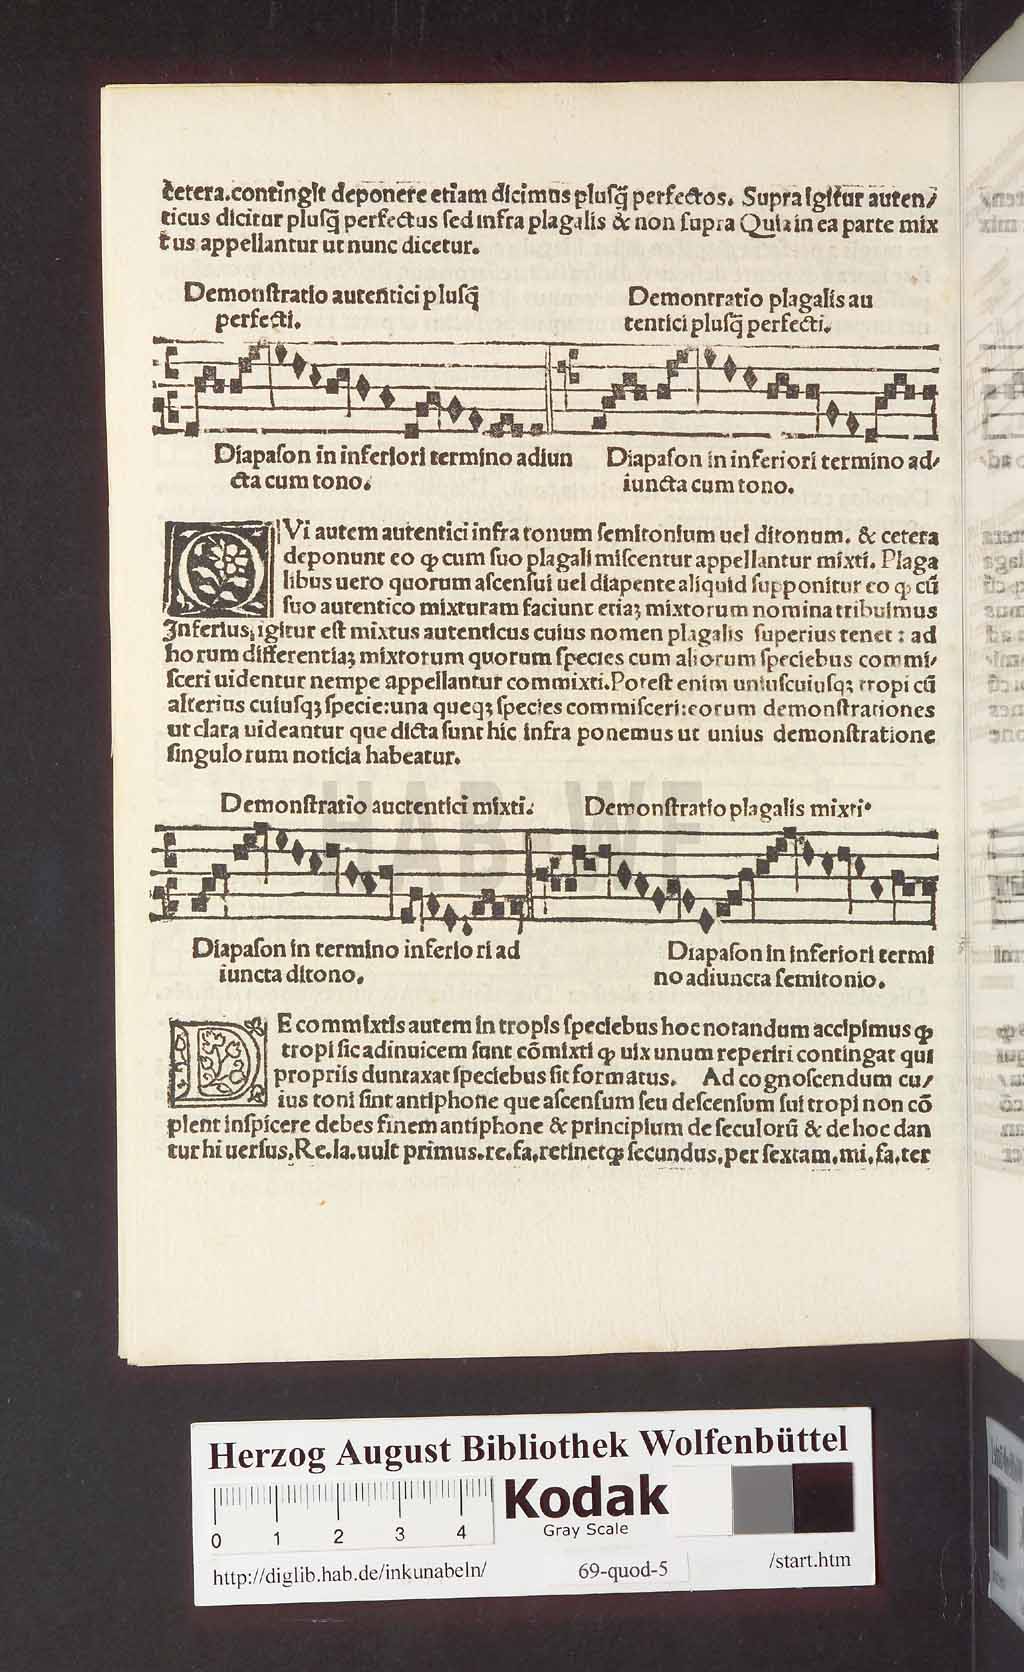 cetera.contingit deponere etiam dicimus plusq̃ perfectos. Supra igitur auten/
ticus dicitur plusq̃ perfectus sed infra plagalis & non supra Quia in ea parte mix
tus appellantur ut nunc dicetur.
Demonstratio autentici plusq̃
perfecti.
Demontratio plagalis au
tentici plusq̃ perfecti.
Diapason in inferiori termino adiun
cta cum tono.
Diapason in inferiori termino ad/
iuncta cum tono.
QVi autem autentici infra tonum semitonium uel ditonum. & cetera
deponunt eo ꝙ cum suo plagali miscentur appellantur mixti. Plaga
libus uero quorum ascensui uel diapente aliquid supponitur eo ꝙ cũ
suo autentico mixturam faciunt etiaꝫ mixtorum nomina tribuimus
Inferius igitur est mixtus autenticus cuius nomen plagalis superius tenet : ad
horum differentiaꝫ mixtorum quorum species cum aliorum speciebus commi/
sceri uidentur nempe appellantur commixti.Potest enim uniuscuiusqꝫ tropi cũ
alterius cuiusqꝫ specie:una queqꝫ species commisceri:eorum demonstrationes
ut clara uideantur que dicta sunt hic infra ponemus ut unius demonstratione
singulorum noticia habeatur.
HAB WF
Demonstratio auctentici mixti.
Demonstratio plagalis mixti.
Diapason in termino inferiori ad
iuncta ditono.
Diapason in inferiori termi
no adiuncta semitonio.
DE commixtis autem in tropis speciebus hoc notandum accipimus ꝙ
tropi sic adinuicem sunt cõmixti ꝙ uix unum reperiri contingat qui
propriis duntaxat speciebus sit formatus. Ad cognoscendum cu/
ius toni sint antiphone que ascensum seu descensum sui tropi non cõ
plent inspicere debes finem antiphone & principium de seculorũ & de hoc dan
tur hi uersus.Re.la.uult primus.re.fa.retinetꝙ secundus.per sextam.mi.fa.ter
Herzog August Bibliothek Wolfenbüttel
0 1 2 3 4
Kodak
Gray Scale
http://diglib.hab.de/inkunabeln/
69-quod-5
/start.htm